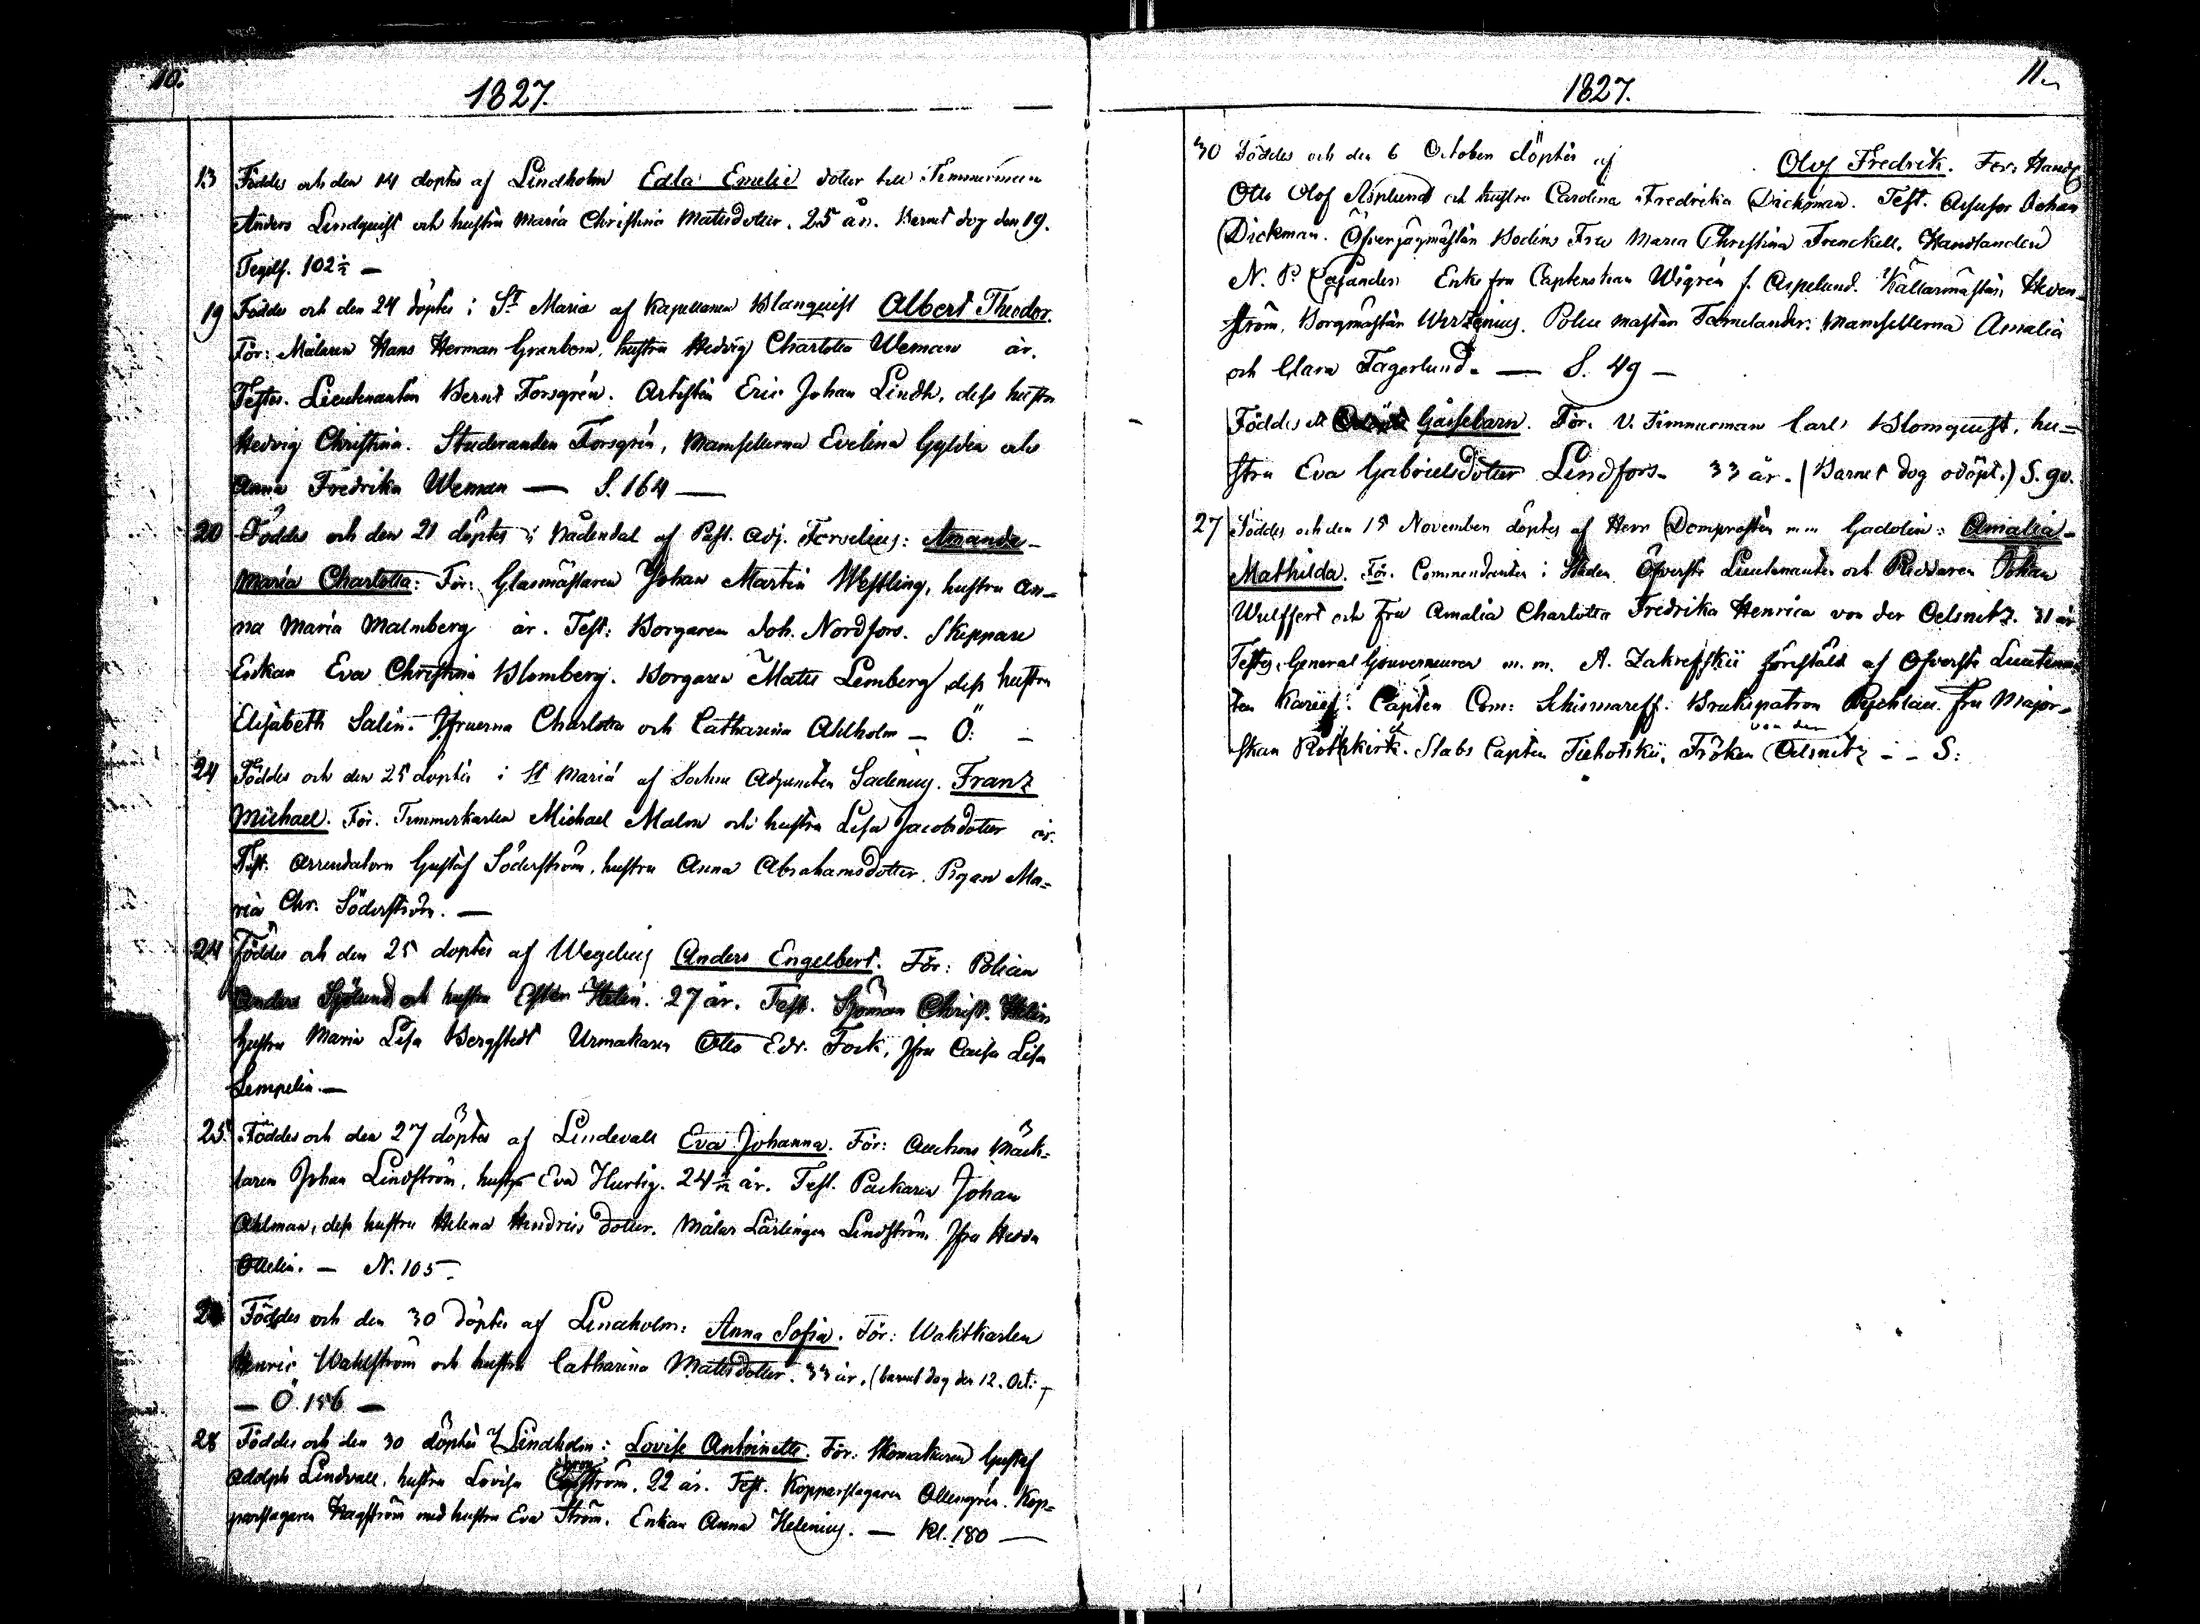 10.
1827.
13 Föddes och den 14 döptes af Lindholm Edla Emelie dotter till Timmerman
Anders Lindquist och hustru Maria Christina Matsdotter. 25 år. Barnet dog den 19.
102½ —
19 Föddes och den 24 döptes i St Maria af Kapellanen Blanquist Albert Theodor.
För: Målaren Hans Herman Granbom, hustru Hedvig Charlotta Weman år.
Testes. Lieutenanten Bernt Forsgrén. Artisten Eric Johan Lindh, dess hustru
Hedvig Christina. Studeranden Forsgrén, Mamsellerna Evelina Gyldén och
Anna Fredrika Weman — S. 164 —
20 Föddes och den 21 döptes i Nådendal af Past. Adj. Forselius: Amanda
Maria Charlotta: För: Glasmästaren Johan Martin Westling, hustru An-
na Maria Malmberg år. Test: Borgaren Joh. Nordfors. Skeppare
Enkan Eva Christina Blomberg. Borgaren Matts Lemberg, dess hustru
Elisabeth Salin. Jfruerna Charlotta och Catharina Ahlholm — Ö: —
24 Föddes och den 25 döptes i St Maria af Sockne Adjuncten Sadenius. Franz
Michael. För. Timmerkarlen Michael Malm och hustru Lisa Jacobsdotter år.
Test: Arrendatorn Gustaf Söderström, hustru Anna Abrahamsdotter. Pigan Ma-
ria Chr. Söderström. —
24 Föddes och den 25 döptes af Wegelius Anders Engelbert. För: Polisen
Anders Sjölund och hustru Ester Helin. 27 år. Test. Sjöman Christ. Helin
hustru Maria Lisa Bergstedt Urmakaren Otto Edv. Fock, Jfru Caisa Lisa
Lempelin. —
25. Föddes och den 27 döptes af Lindevall Eva Johanna. För: Auctions Mäck-
laren Johan Lindström, hustru Eva Hurtig. 24½ år. Test. Packaren Johan
Ahlman, dess hustru Helena Hindrics dotter. Målar Lärlingen Lindström Jfru Hedda
Ollelin. — N. 105 —
Föddes och den 30 döptes af Lindholm: Anna Sofia. För: Waktkarlen
Henric Wahlström och hustru Catharina Mattsdotter. 33 år. (barnet dog den 12. Oct:
— Ö. 156 —
28 Föddes och den 30 döptes af Lindholm: Lovise Antoinette. För: Skomakaren Gustaf
Adolph Lindvall, hustru Lovisa 22 år. Test. Kopparslagaren Ollengrén. Kop-
parslagaren Hagström med hustru Eva Ström. Enkan Anna Helenius. — Kl. 180 —
11.
1827.
30 Föddes och den 6 October döptes af Olof Fredrik. För: Handl
Otto Olof Asplund och hustru Carolina Fredrika Dickman. Test. Assessor Johan
Dickman. Öfverjägmästan Bodin Fru Maria Christina Frenckell, Handlanden
N. P. Cajander Enke fru Captenskan Wigrén f. Aspelund. Källarmästan Heven-
ström, Borgmästan Wirzenius. Police mästan Tamelander. Mamsellerna Amalia
och Clara Fagerlund. — S. 49 —
Föddes ett Gåssebarn. För. V. Timmerman Carl Blomquist, hu=
stru Eva Gabrielsdotter Lindfors. 33 år. (Barnet dog odöpt.) S. 90.
27 Föddes och den 15 November döptes af Herr Domprosten m.m Gadolin: Amalia
Mathilda. För. Commendanten i Staden Öfverste Lieutenanten och Riddaren Johan
Wulffert och Fru Amalia Charlotta Fredrika Henrica von der Oelsnitz. 31 år
Testes, General Gouverneuren m.m. A. Zakreffskii föreståld af Öfverste Lieutenan-
ten Karieff. Capten Com: Schismareff. Brukspatron Bychlau. Fru Major-
skan Rothkirk. Stabs Capten Tichotskii, Fröken von der Oelsnitz - - S: